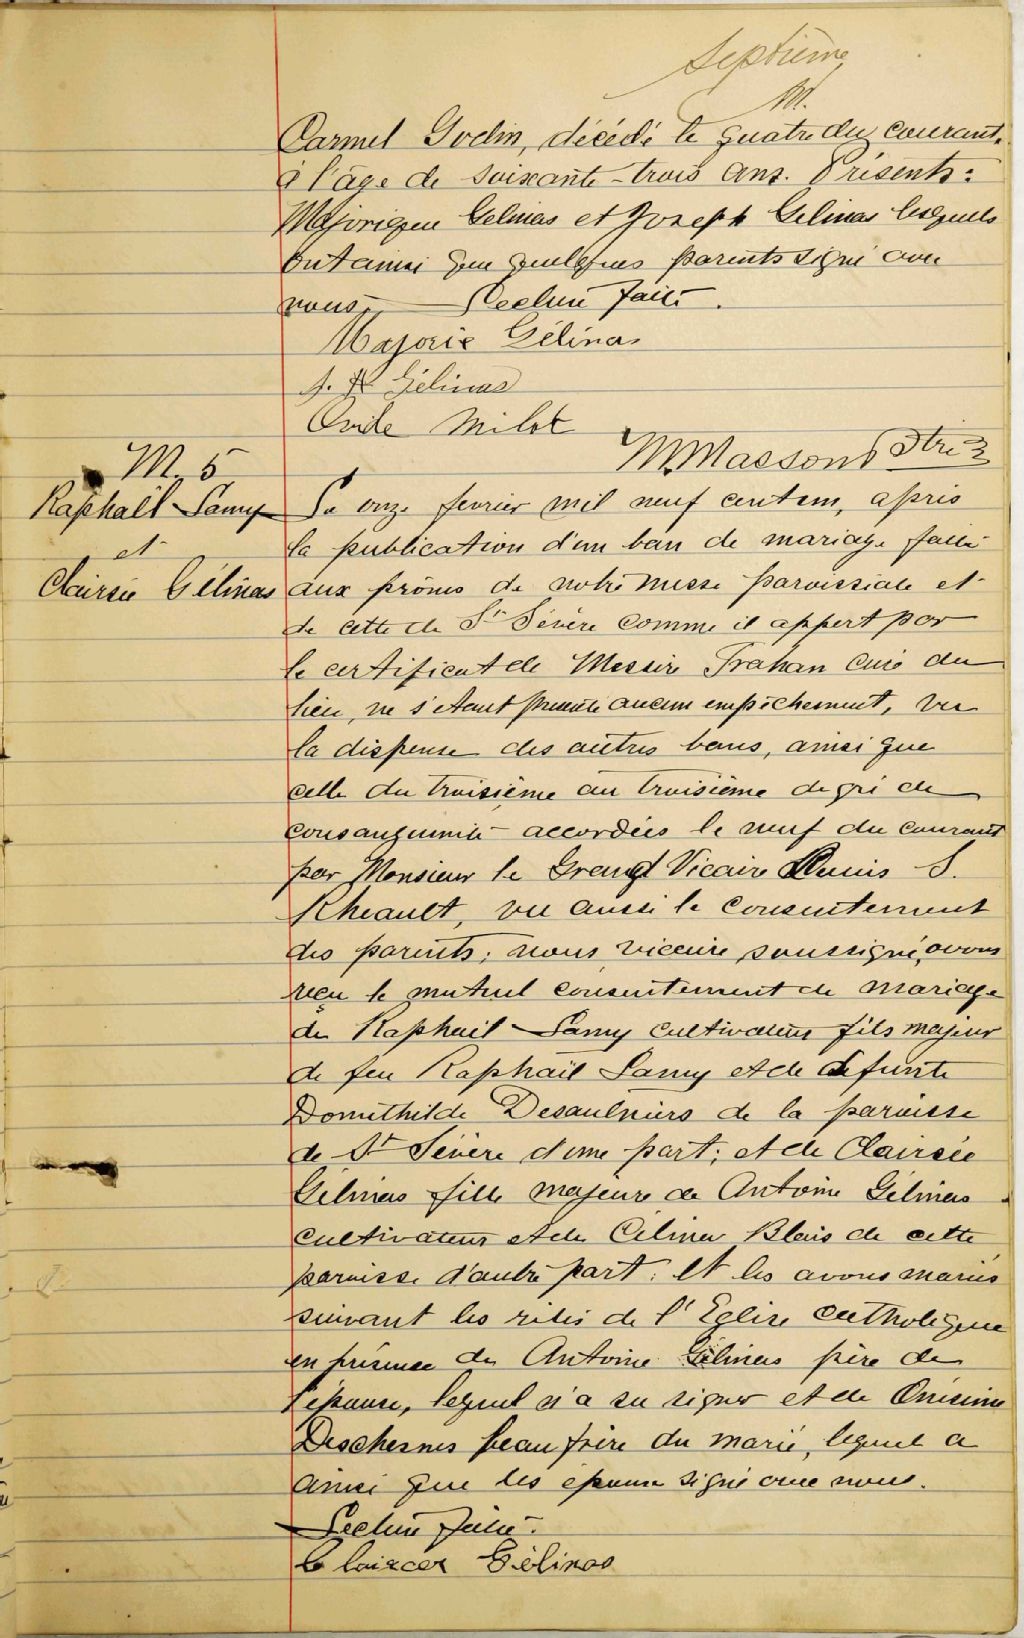 Septième
M.
Carmel Godin, décédé le quatre du courant,
à l'âge de soixante-trois ans. Présents:
Majorique Gelinas et Joseph Gelinas lesquels
ont ainsi que quelques parents signé avec
nous. Lecture faite.
Majorie Gélinas
J. H Gélinas
Ovide Milot
M. Masson Ptre
M. 5
Raphaël Lamy
et
Clairsée Gélinas
Le onze fevrier mil neuf cent un, après
la publication d'un ban de mariage faite
aux prônes de notre messe paroissiale et
de cette de St Sévère comme il appert par
le certificat de Messire Trahan curé du
lieu, ne s'étant présenté aucun empêchement, vu
la dispense des autres bans, ainsi que
celle du troisième au troisième degré de
consanguinité accordées le neuf du courant
par Monsieur le Grand Vicaire Louis S.
Rheault, vu aussi le consentement
des parents; nous vicaire soussigné, avons
reçu le mutuel consentement de mariage
de Raphaël Lamy cultivateur fils majeur
de feu Raphaël Lamy et de défunte
Domithilde Desaulniers de la paroisse
de St Sévère d'une part; et de Clairsée
Gélinas fille majeure de Antoine Gélinas
cultivateur et de Célina Blais de cette
paroisse d'autre part: et les avons mariés
suivant les rites de l'Eglise catholique
en présence de Antoine Gélinas père de
l'épouse, lequel n'a su signer et de Onésime
Deschesnes beau frère du marié, lequel a
ainsi que les époux signé avec nous.
Lecture faite.
Claircer Gélinas